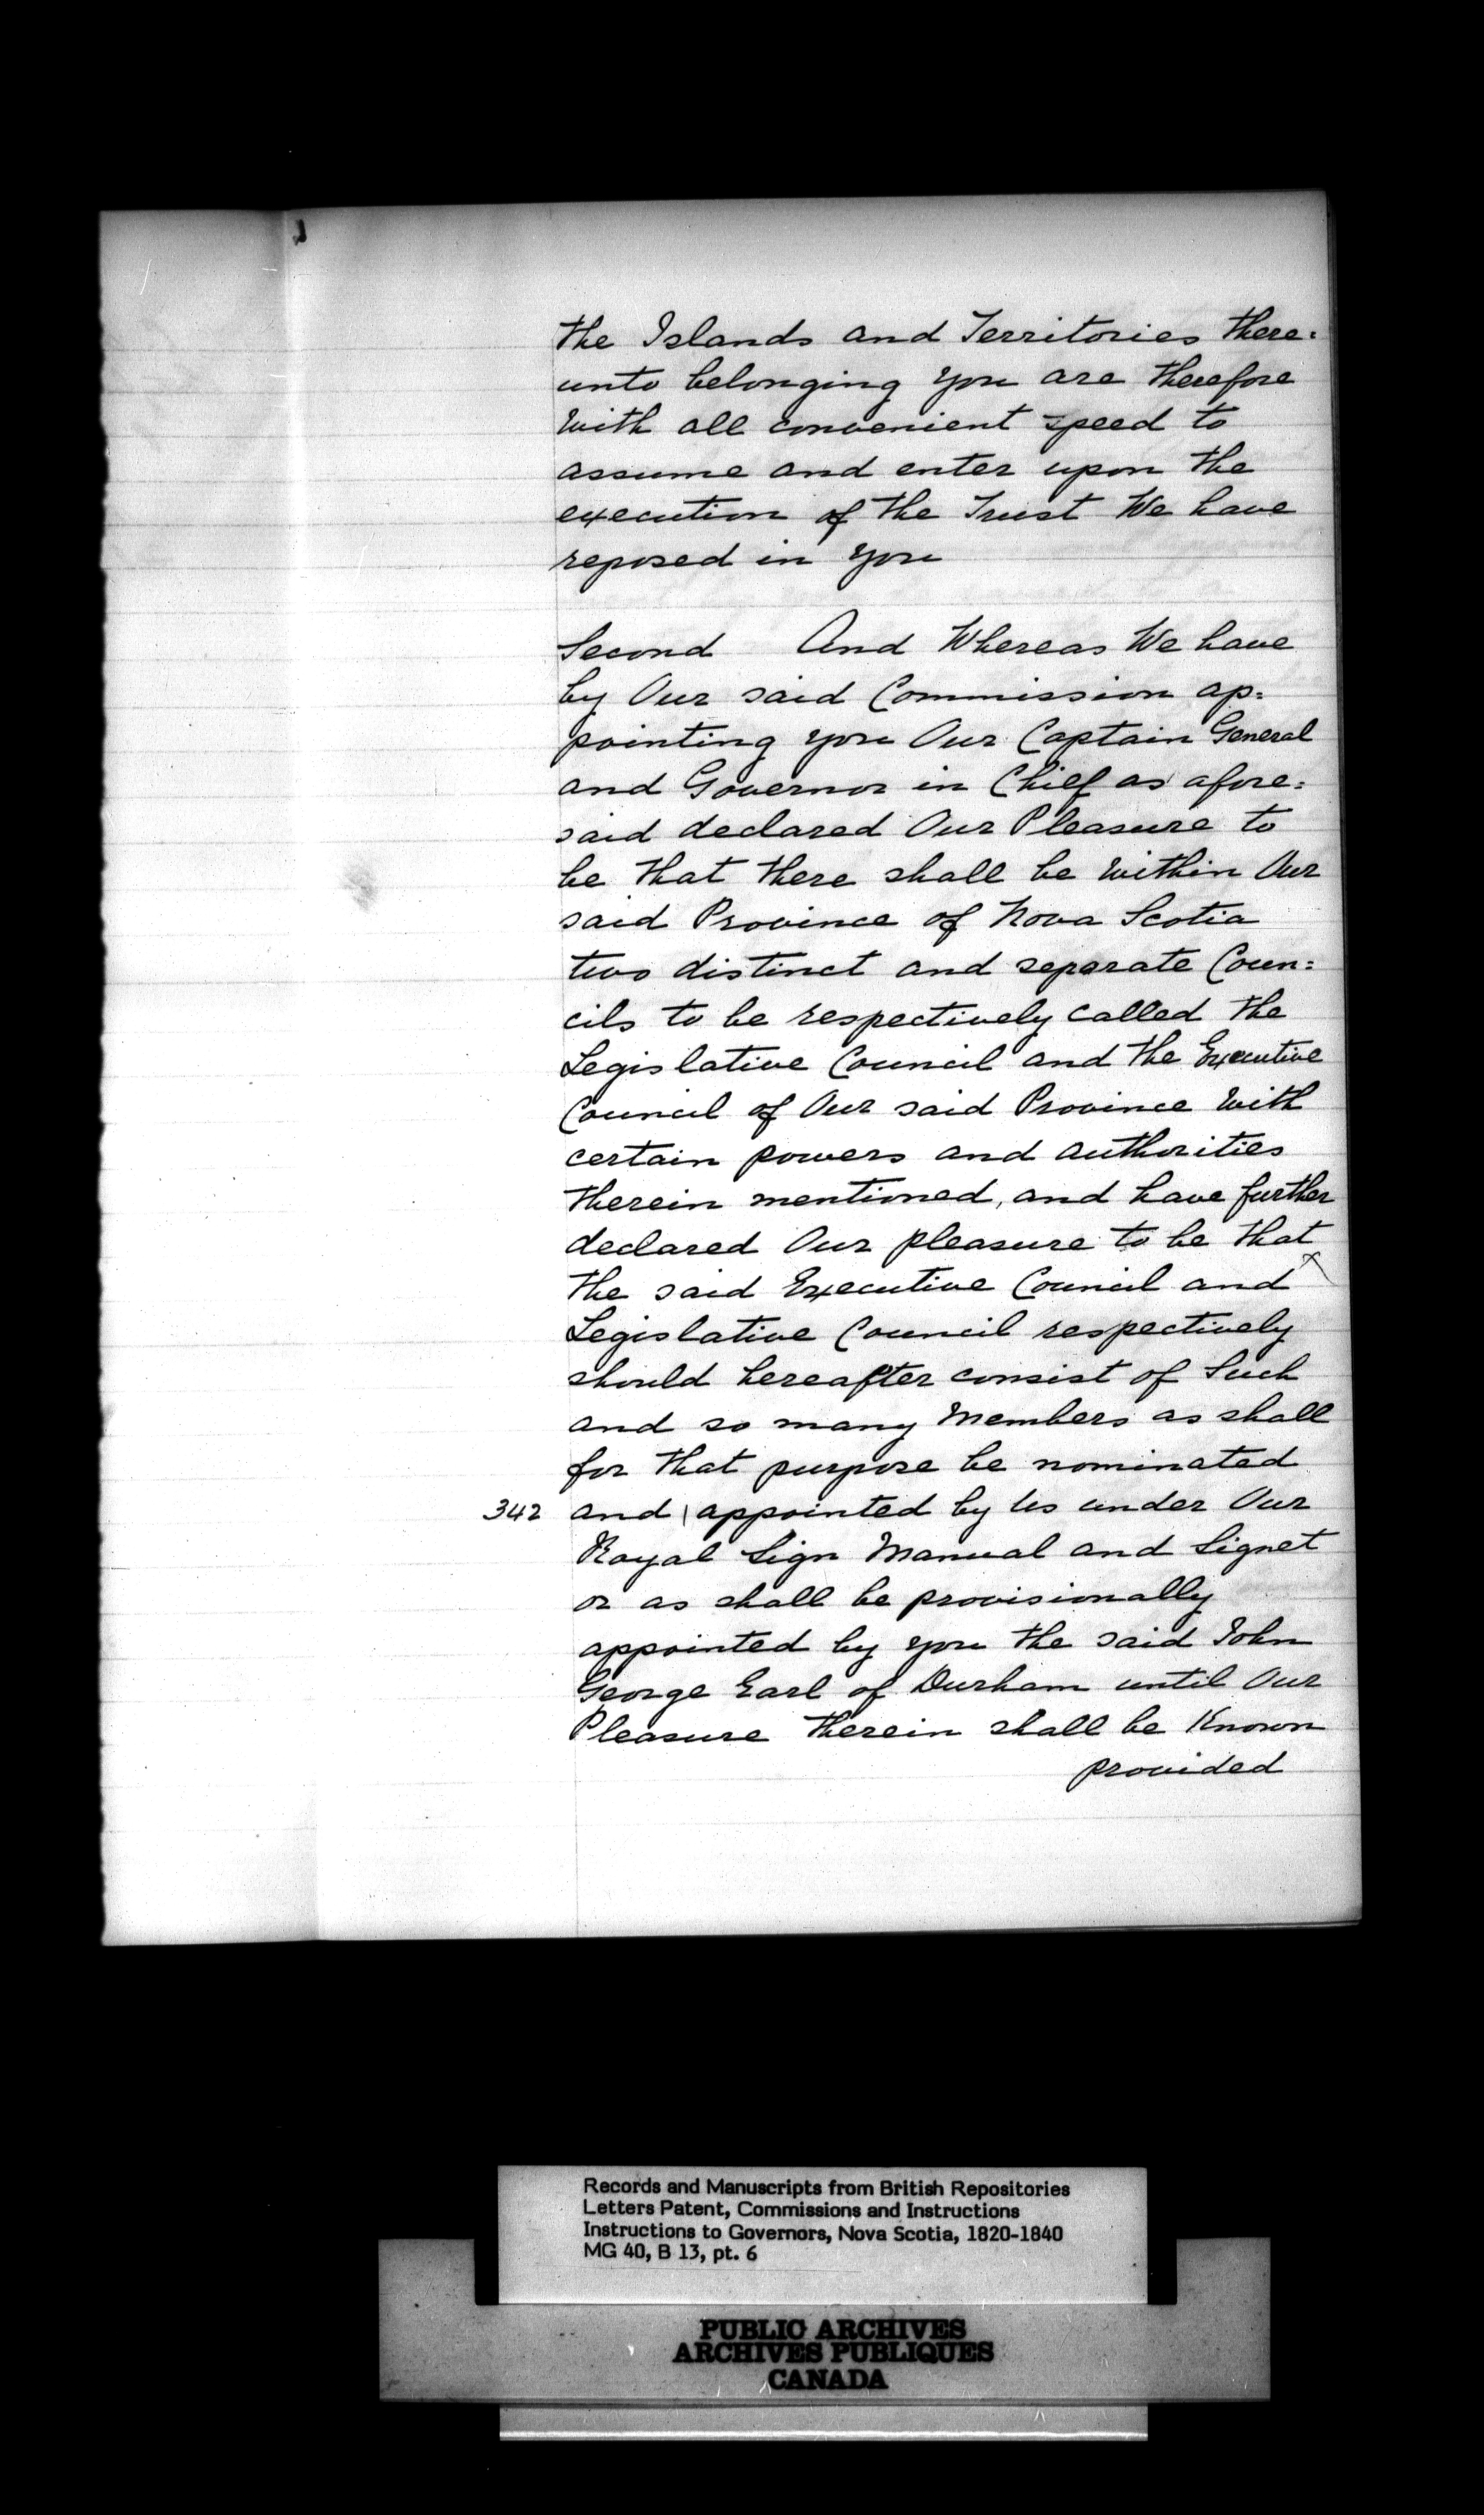 the Islands and Territories there=
unto belonging you are therefore
with all convenient speed to
assume and enter upon the
execution of the Trust We have
reposed in you
Second And Whereas We have
by Our said Commission ap=
pointing you Our Captain General
and Governor in Chief as afore=
said declared Our Pleasure to
be that there shall be within Our
said Province of Nova Scotia
two distinct and separate Coun=
cils to be respectively called the
Legislative Council and the Executive
Council of Our said Province with
certain powers and authorities
therein mentioned, and have further
declared Our pleasure to be that
the said Executive Council and
Legislative Council respectively
should hereafter consist of Such
and so many Members as shall
for that purpose be nominated
342 and | appointed by Us under Our
Royal Sign Manual and Signet
or as shall be provisionally
appointed by you the said John
George Earl of Durham until Our
Pleasure therein shall be Known
provided
Records and Manuscripts from British Repositories
Letters Patent, Commissions and Instructions
Instructions to Governors, Nova Scotia, 1820-1840
MG 40, B 13, pt. 6
PUBLIC ARCHIVES
ARCHIVES PUBLIQUES
CANADA